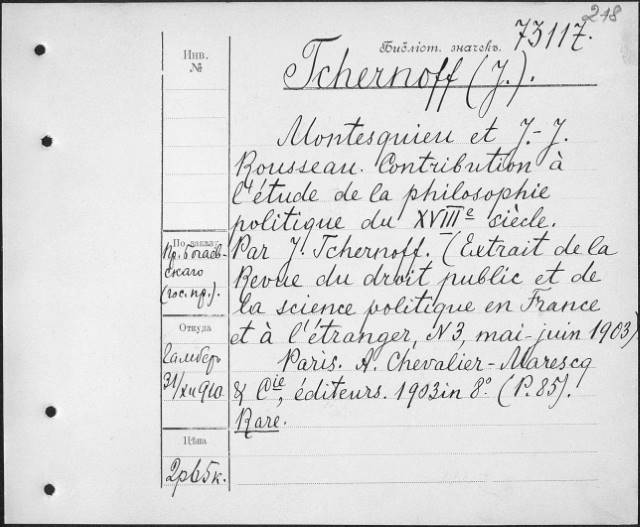 248
Библіот. значекъ. 73117.
Инв.
№
Tchernoff (J.).
Montesquieu et J.-J.
Rousseau. Contribution à
l'étude de la philosophie
politique du XVIIIe siècle.
Par J. Tchernoff. (Extrait de la
Revue du droit public et de
la science politique en France
et à l'étranger, N 3, mai-juin 1903)
Paris. A. Chevalier-Marescq
& Cie, éditeurs. 1903 in 8°. (P. 85).
Rare.
По заказу
Пр. Богаев-
скаго
(гос. пр.).
Откуда
Гамберъ
31/XII 910.
Цѣна
2р 65к.